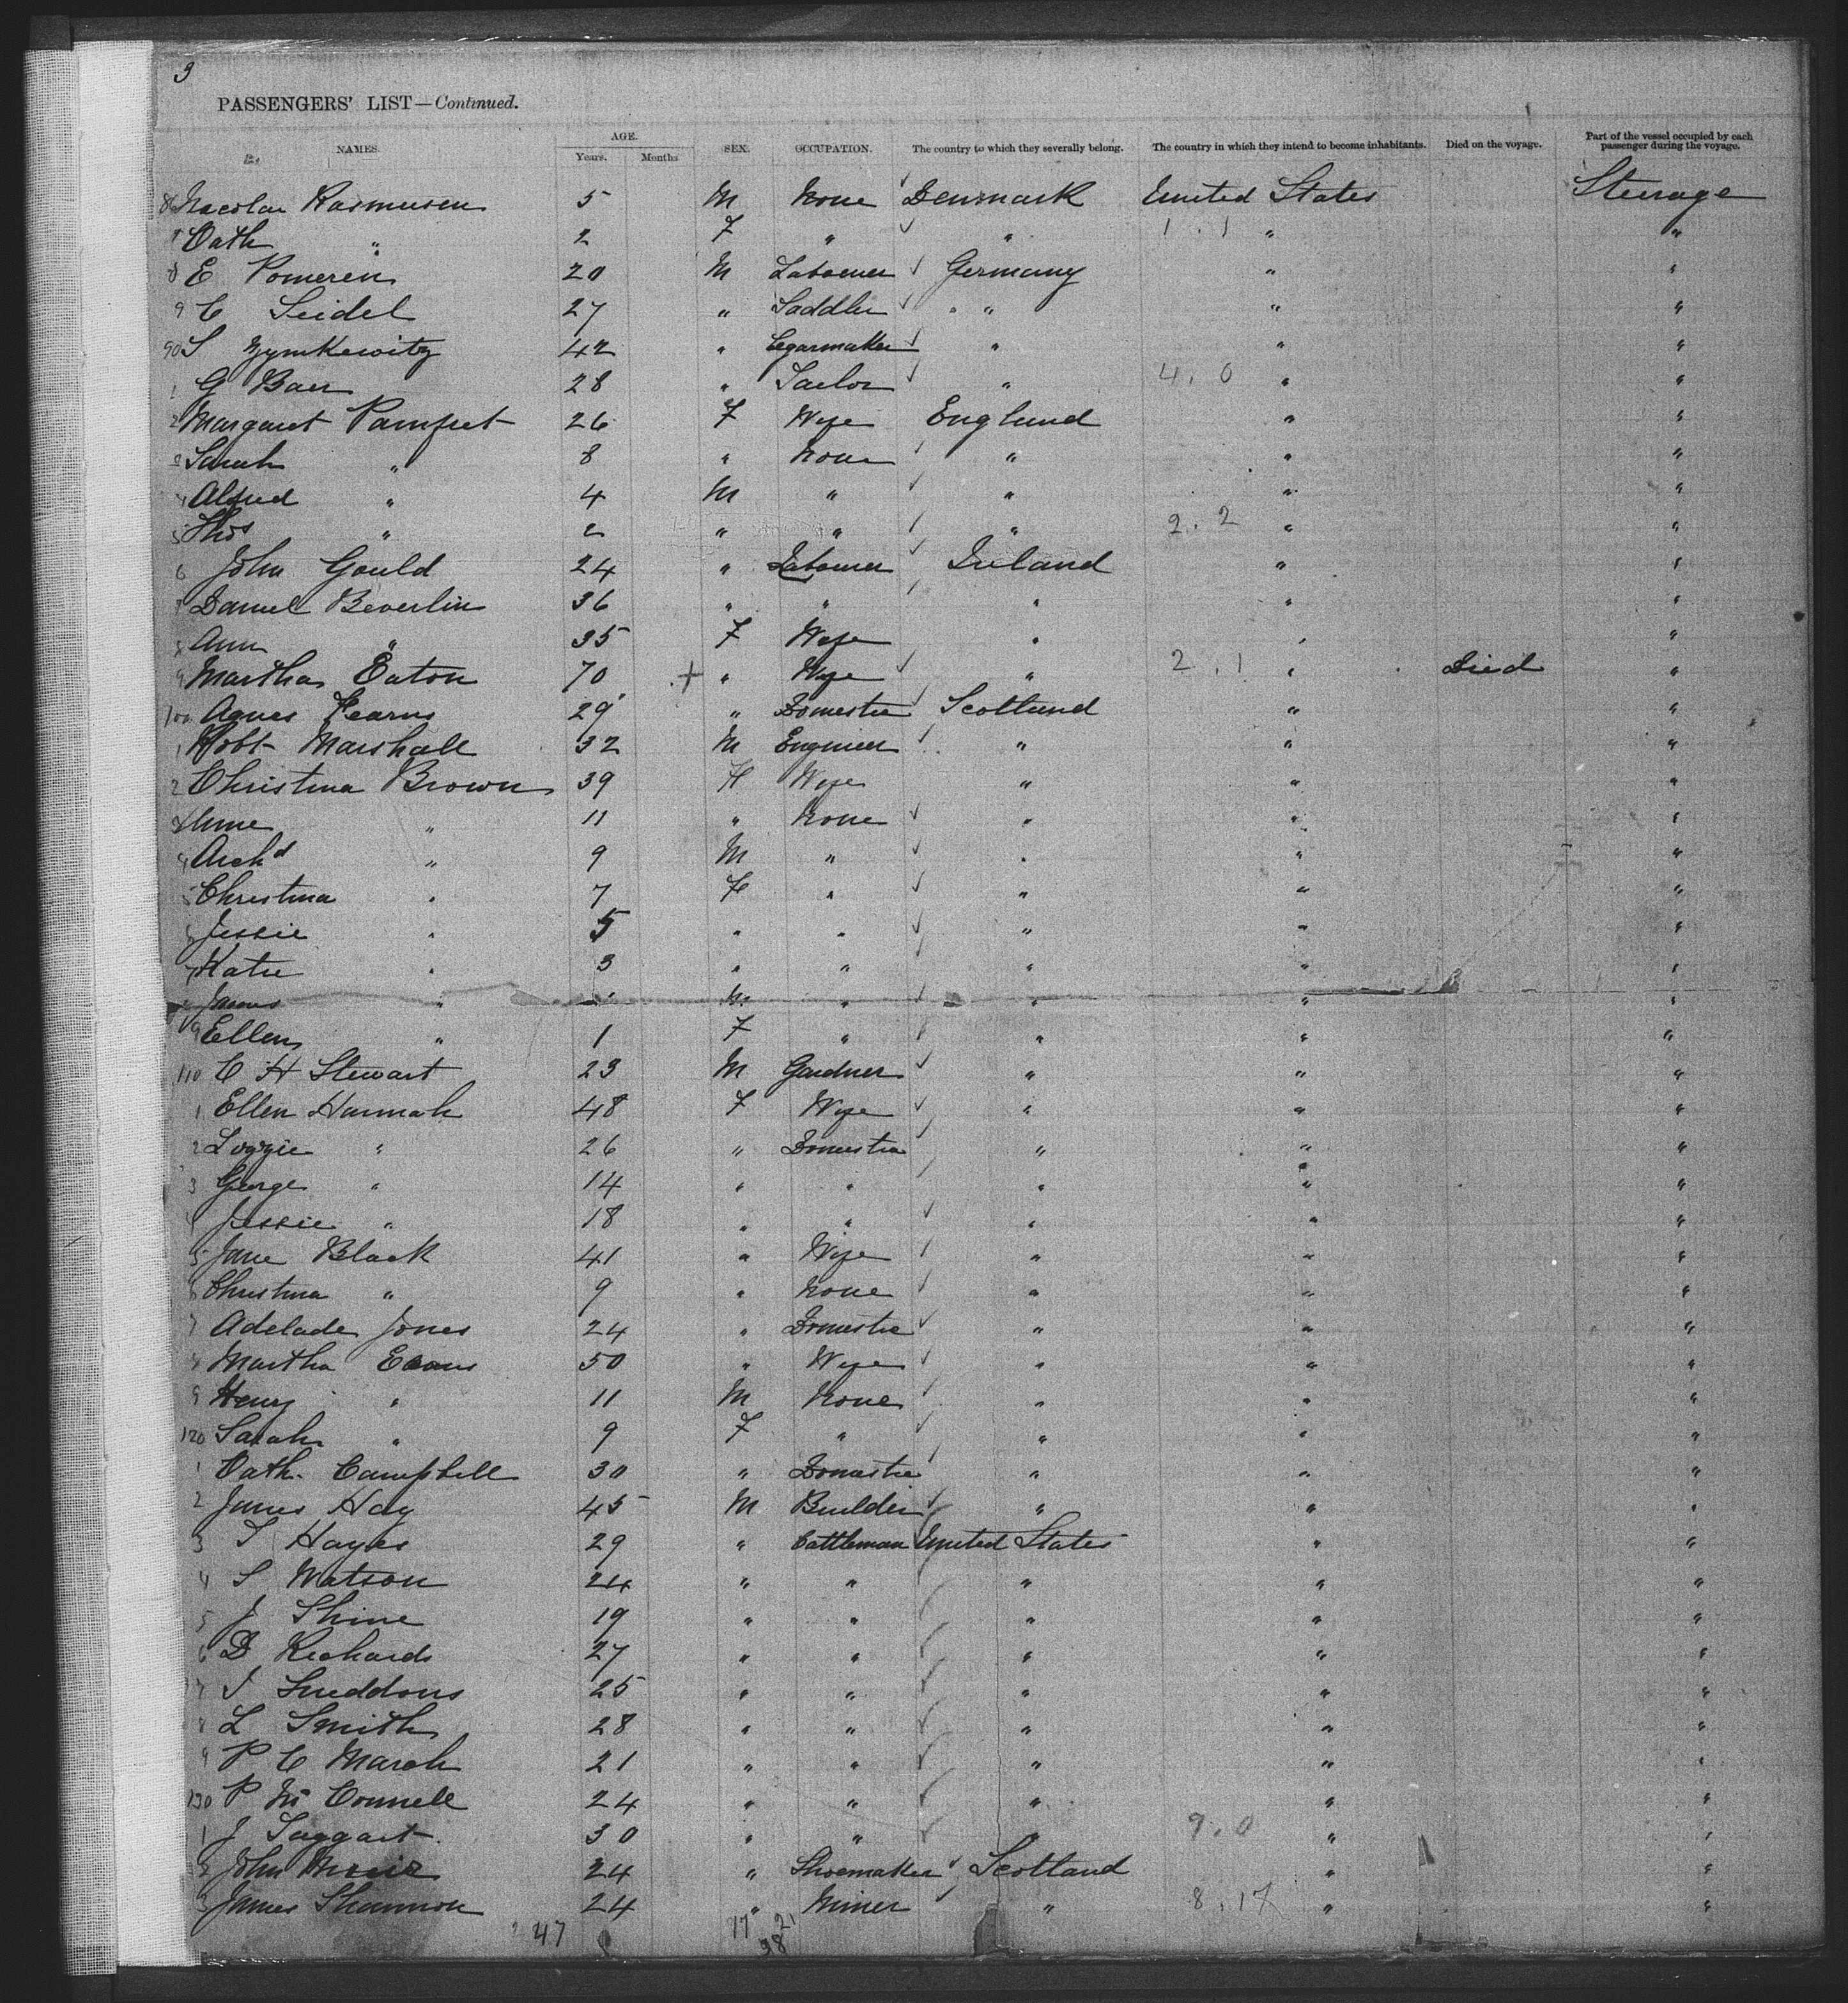 3
PASSENGERS' LIST—Continued.
NAMES. AGE. Years. Months SEX. OCCUPATION. The country to which they severally belong. The country in which they intend to become inhabitants. Died on the voyage. Part of the vessel occupied by each passenger during the voyage.
Rasmusen 5 M None Denmark United States Steerage
7 Cath " 2 F " " 1.1 " "
8 E Pomeren 20 M Labourer Germany " "
9 C Seidel 27 " Saddler " " "
90 S Zymkewitz 42 " Cegarmaker " " "
1 G Baer 28 " Tailor " 4.0 " "
2 Margaret Pamfret 26 F Wife England " "
3 Sarah " 8 " None " " "
4 Alfred " 4 M " " " "
5 Thos " 2 " " " 2.2 " "
6 John Gould 24 " Labourer Ireland " "
7 Daniel Beverlin 36 " " " " "
8 Ann " 35 F Wife " " "
9 Martha Eaton 70 + " Wife " 2.1 " Died "
100 Agnes Kearns 29 " Domestic Scotland " "
1 Robt Marshall 32 M Engineer " " "
2 Christina Brown 39 F Wife " " "
3 " 11 " None " " "
4 Archd " 9 M " " " "
5 Christina " 7 F " " " "
6 Jessie " 5 " " " " "
7 Katie " 3 " " " " "
8 James " M " " " "
9 Ellen " 1 F " " " "
110 C H Stewart 23 M Gardner " " "
1 Ellen Hannah 48 F Wife " " "
2 Lizzie " 26 " Domestic " " "
3 George " 14 " " " " "
4 Jessie " 18 " " " " "
5 Jane Black 41 " Wife " " "
6 Christina " 9 " None " " "
7 Adelade Jones 24 " Domestic " " "
8 Martha Evans 50 " Wife " " "
9 Henry " 11 M None " " "
120 Sarah " 9 F " " " "
1 Cath. Campbell 30 " Domestic " " "
2 James Hay 45 M Builder " " "
3 T Hayes 29 " Cattleman United States " "
4 S Watson 24 " " " " "
5 J Shine 19 " " " " "
6 D Richards 27 " " " " "
7 J Sneddons 25 " " " " "
8 L Smith 28 " " " " "
9 P C March 21 " " " " "
130 P Mc Connell 24 " " " " "
1 J Taggart 30 " " " 9.0 " "
2 John Muir 24 " Shoemaker Scotland " "
3 James Shannon 24 " Miner " 8.17 " "
47 17 21
38